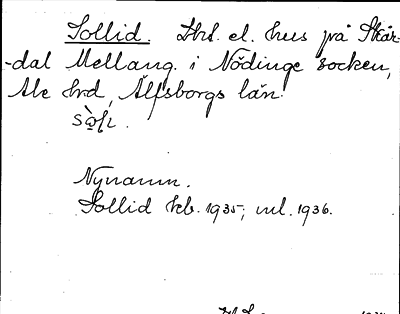 Sollid. Lht. el. hus på Skår-
-dal Mellang. i Nödinge socken,
Ale hrd, Älfsborgs län.
Nynamn.
Sollid kb. 1935; ml. 1936.